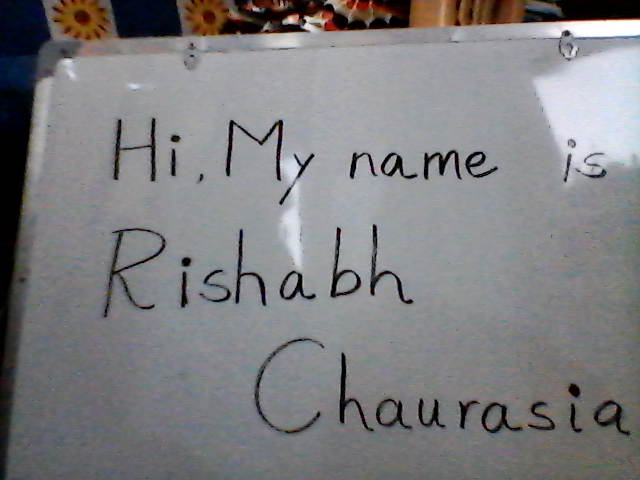 Hi, My name is
Rishabh
Chaurasia